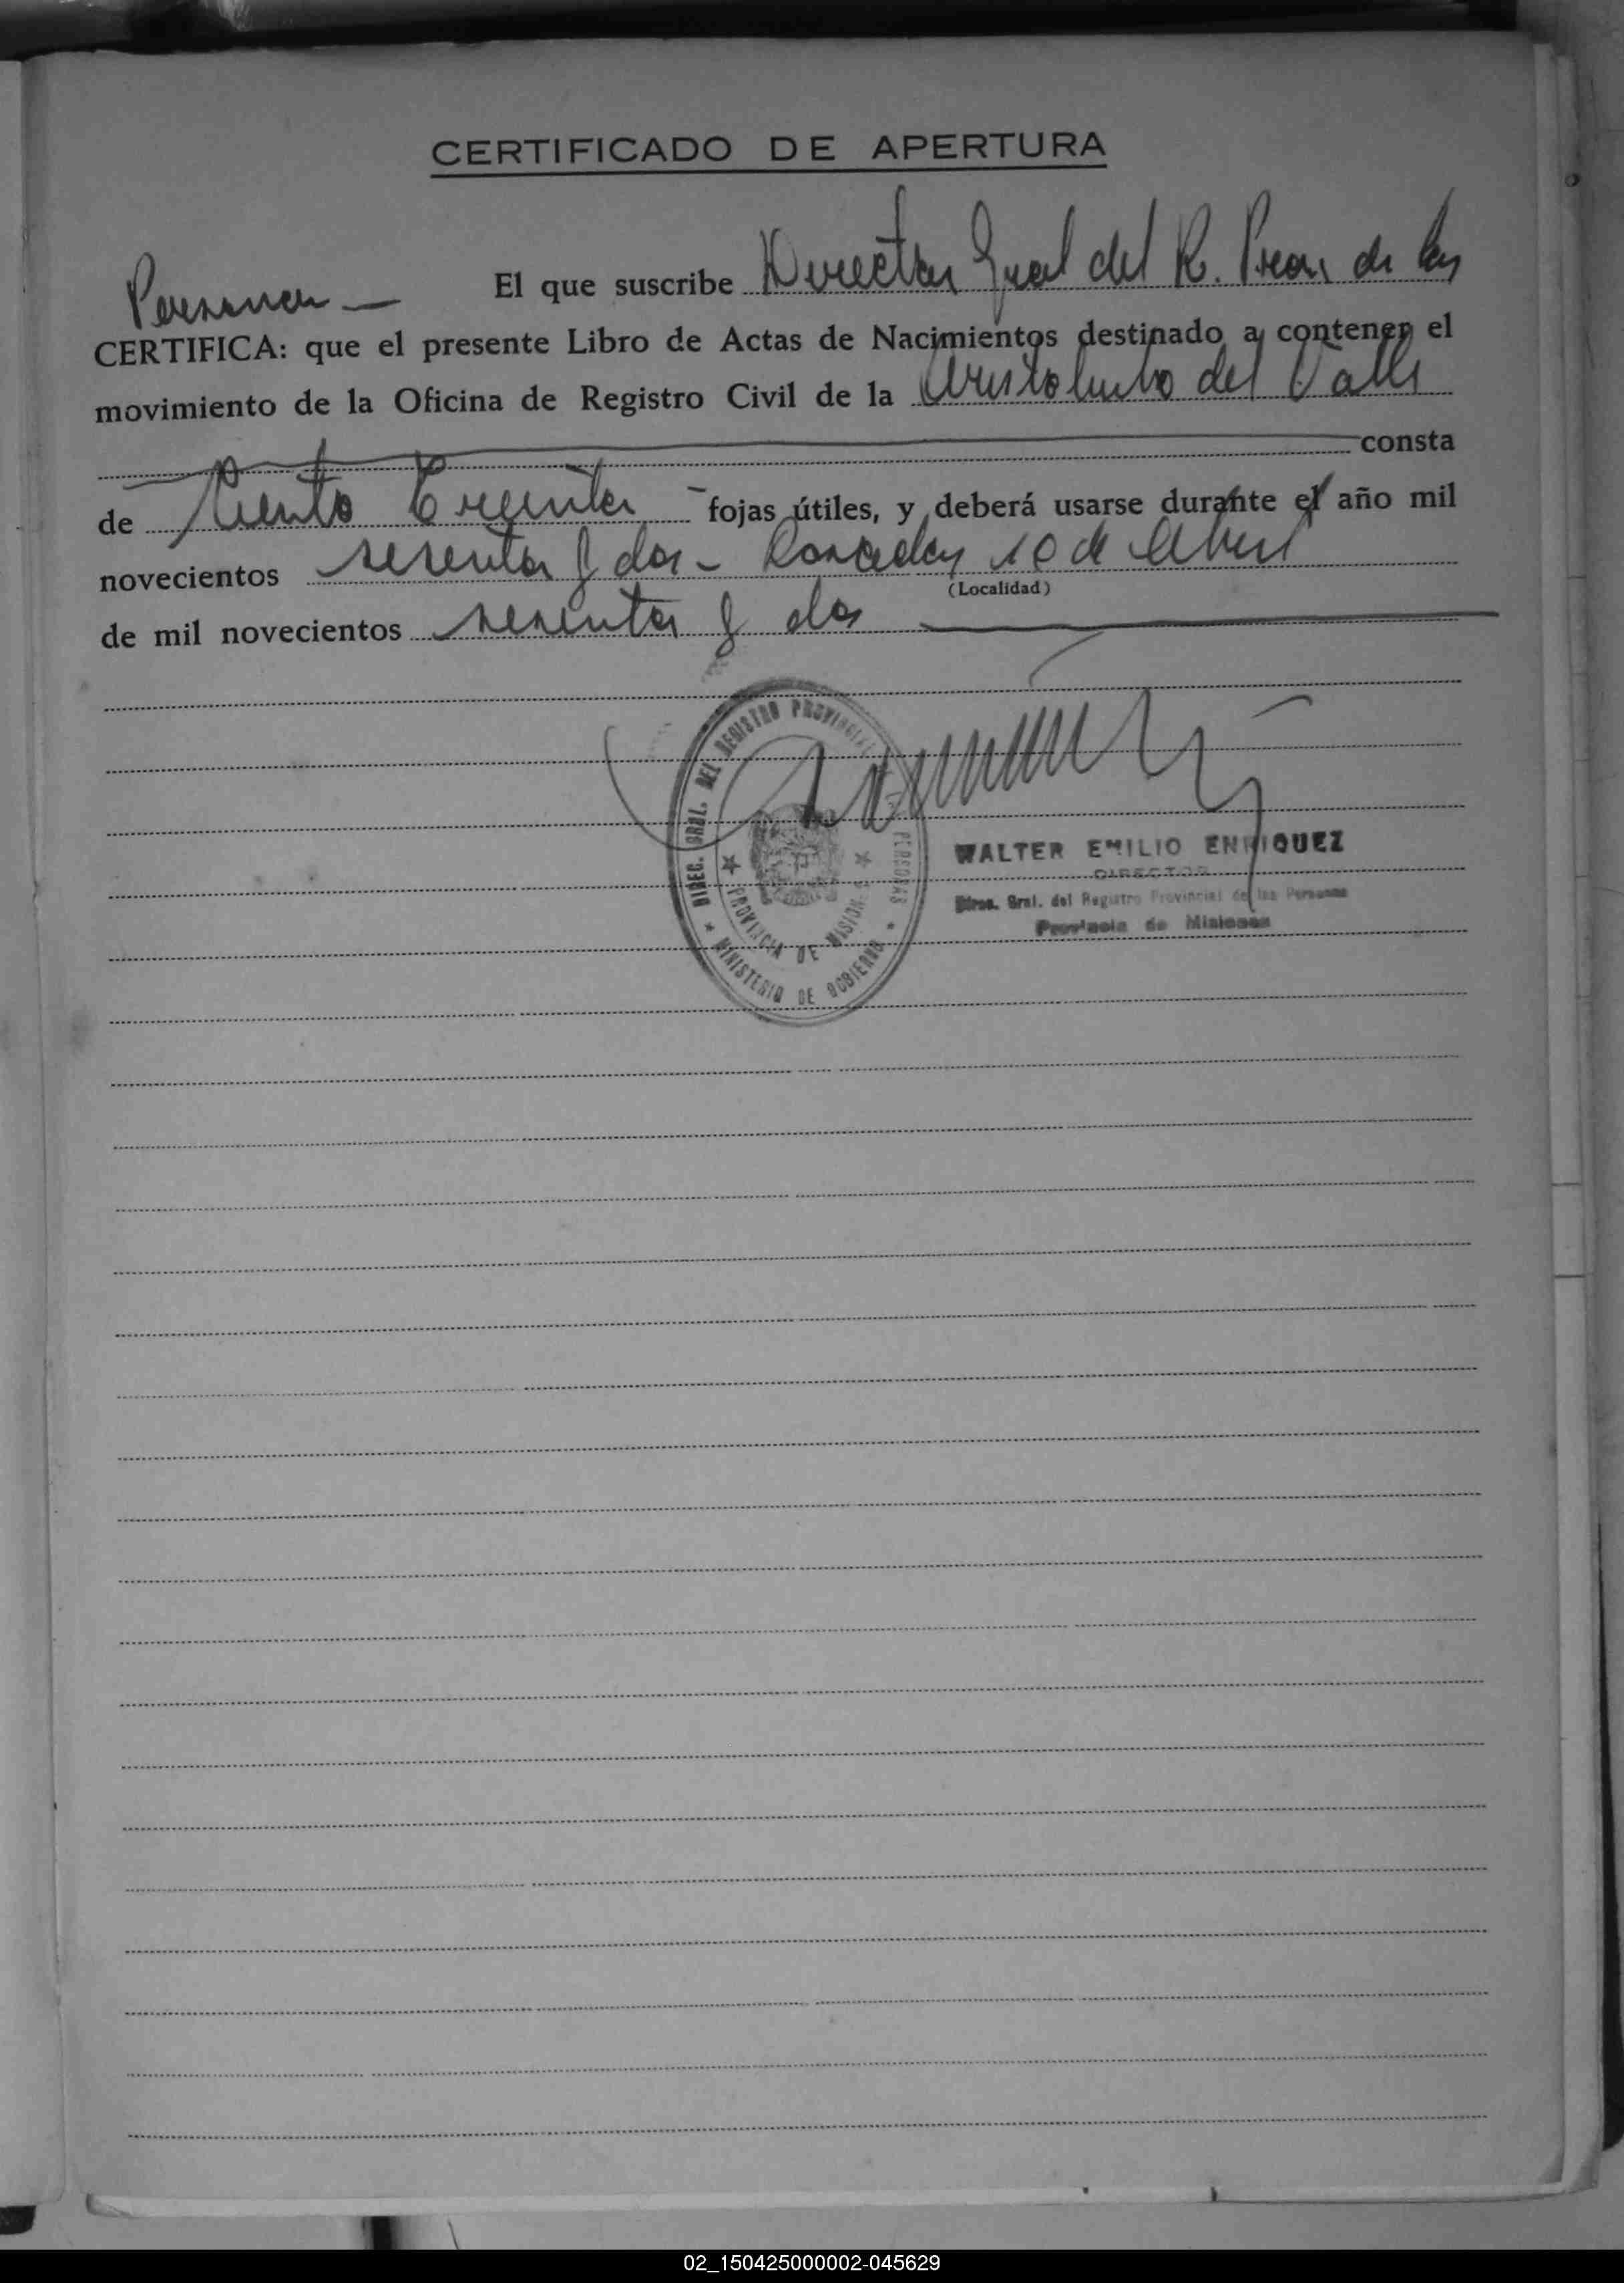 CERTIFICADO DE APERTURA
El que suscribe Director Gral del R. Prov. de las
Personas —
CERTIFICA: que el presente Libro de Actas de Nacimientos destinado a contener el
movimiento de la Oficina de Registro Civil de la Aristobulo del Valle
consta
de Ciento Treinta - fojas útiles, y deberá usarse durante el año mil
novecientos sesenta y dos - Posadas 10 de Abril
(Localidad)
de mil novecientos sesenta y dos
DIREC. GRAL. DEL REGISTRO PROVINCIAL PERSONAS
PROVINCIA DE MISIONES
MINISTERIO DE GOBIERNO
WALTER EMILIO ENRIQUEZ
DIRECTOR
Direc. Gral. del Registro Provincial de las Personas
Provincia de Misiones
02_150425000002-045629